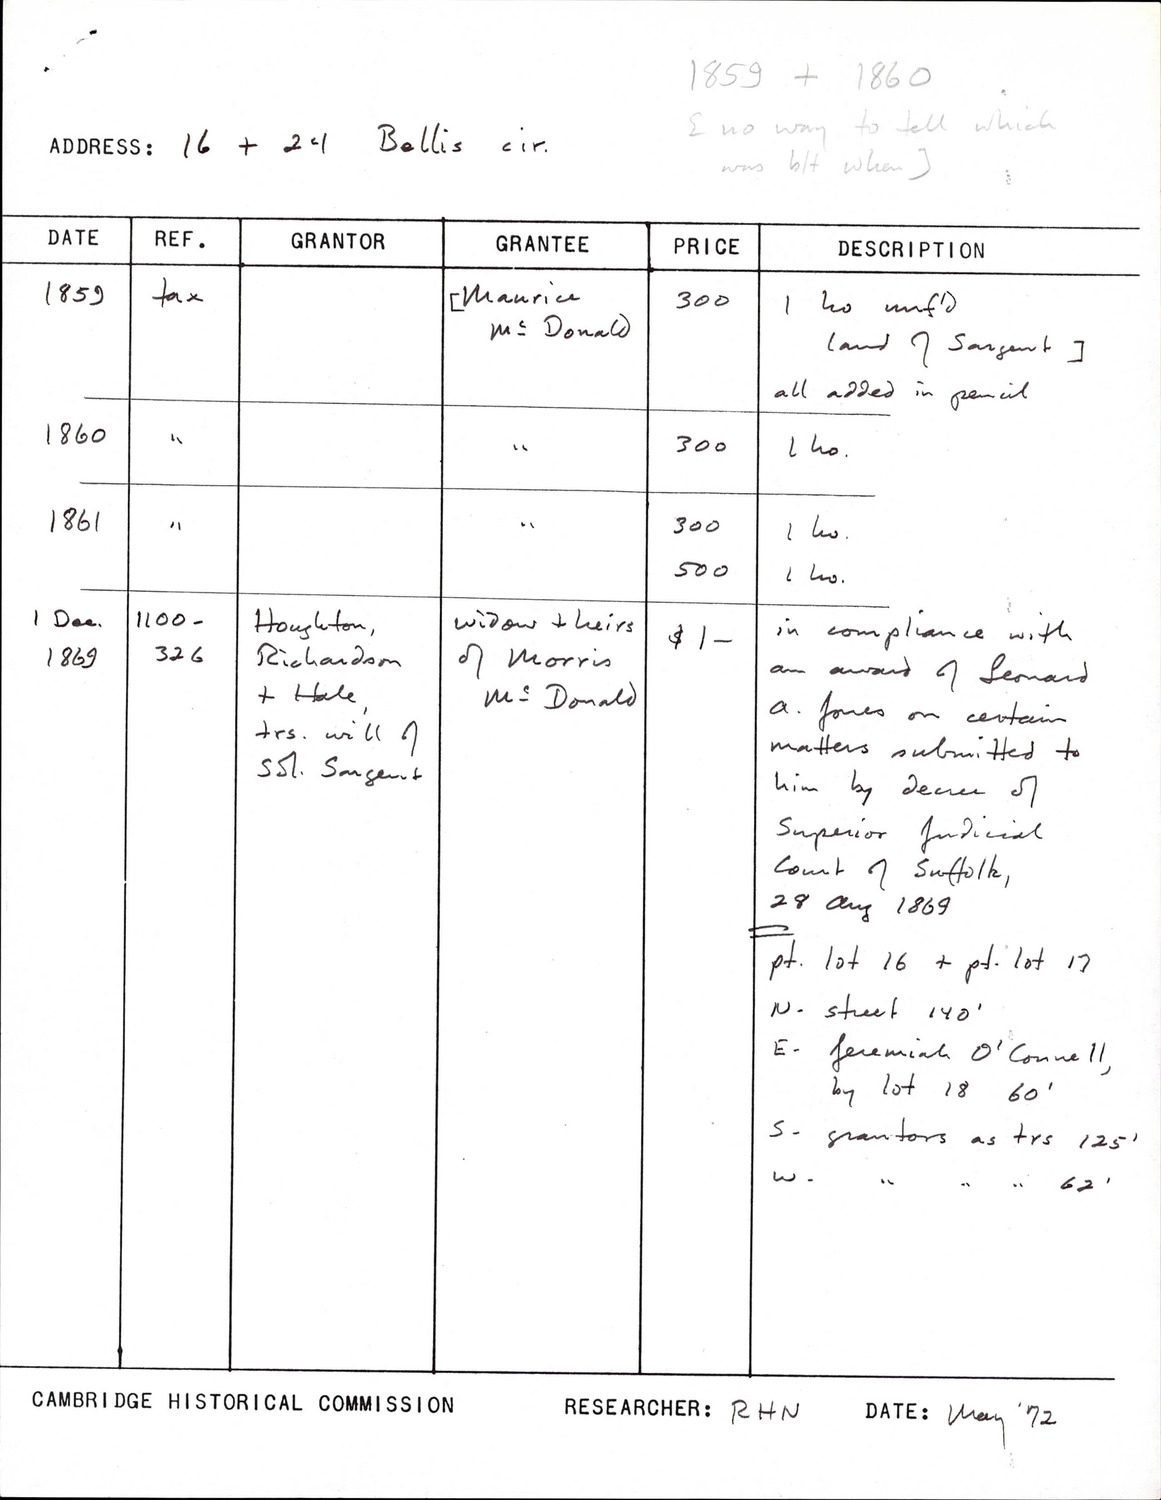 1859 + 1860
[ no way to tell which
was blt when ]
ADDRESS: 16 + 24 Bellis cir.
DATE REF. GRANTOR GRANTEE PRICE DESCRIPTION
1859 tax [Maurice 300 1 ho unf'd
Mc Donald land of Sargent ]
all added in pencil
1860 " " 300 1 ho.
1861 " " 300 1 ho.
500 1 ho.
1 Dec. 1100- Houghton, widow + heirs $1- in compliance with
1869 326 Richardson of Morris an award of Leonard
+ Hale, Mc Donald A. Jones on certain
trs. will of matters submitted to
Sargent him by decree of
Superior Judicial
Court of Suffolk,
28 Aug 1869
pt. lot 16 + pt. lot 17
N- street 140'
E- Jeremiah O'Connell,
by lot 18 60'
S- grantors as trs 125'
W- " " " 62'
CAMBRIDGE HISTORICAL COMMISSION RESEARCHER: RHN DATE: May '72